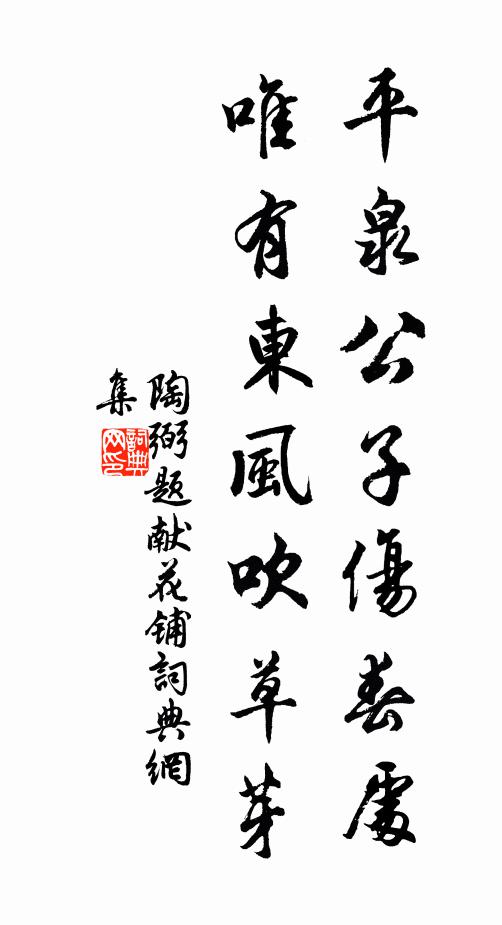 平泉公子傷春處
唯有東風吹草芽
陶弼題献花鋪詞典網
集
詞典网印